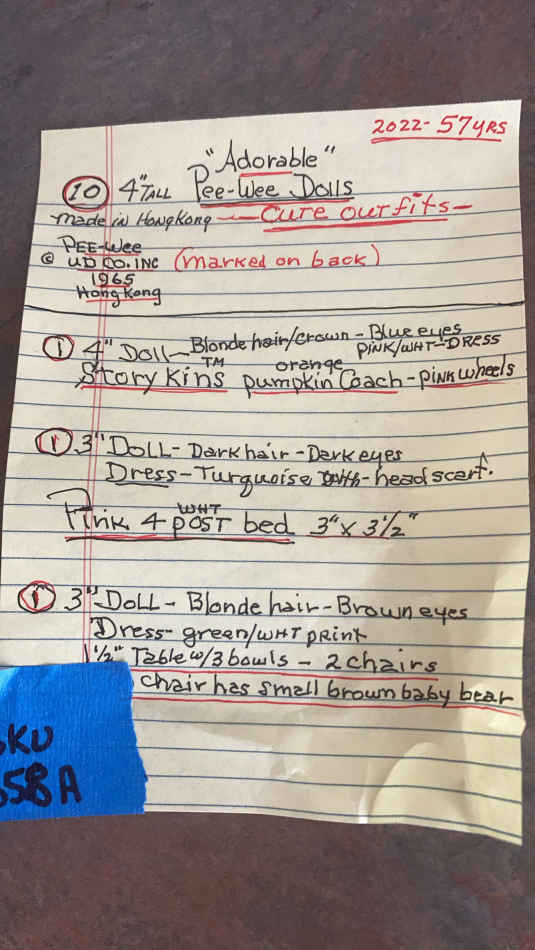 2022- 57YRS
"Adorable"
10 4" TALL Pee-Wee Dolls
made in HongKong - Cute outfits -
PEE-Wee
© UD CO. INC (marked on back)
1965
Hong Kong
1 4" Doll - Blonde hair/crown - Blue eyes
PINK/WHT-DRESS
Story Kins TM orange pumpkin Coach - PINK wheels
1 3" DOLL - Dark hair - Dark eyes
Dress - Turquoise - head scarf.
Pink 4 WHT POST bed 3" x 3 1/2"
1 3" DOLL - Blonde hair - Brown eyes
Dress - green/WHT print
1 1/2" Table w/3 bowls - 2 chairs
chair has small brown baby bear
SKU
58A